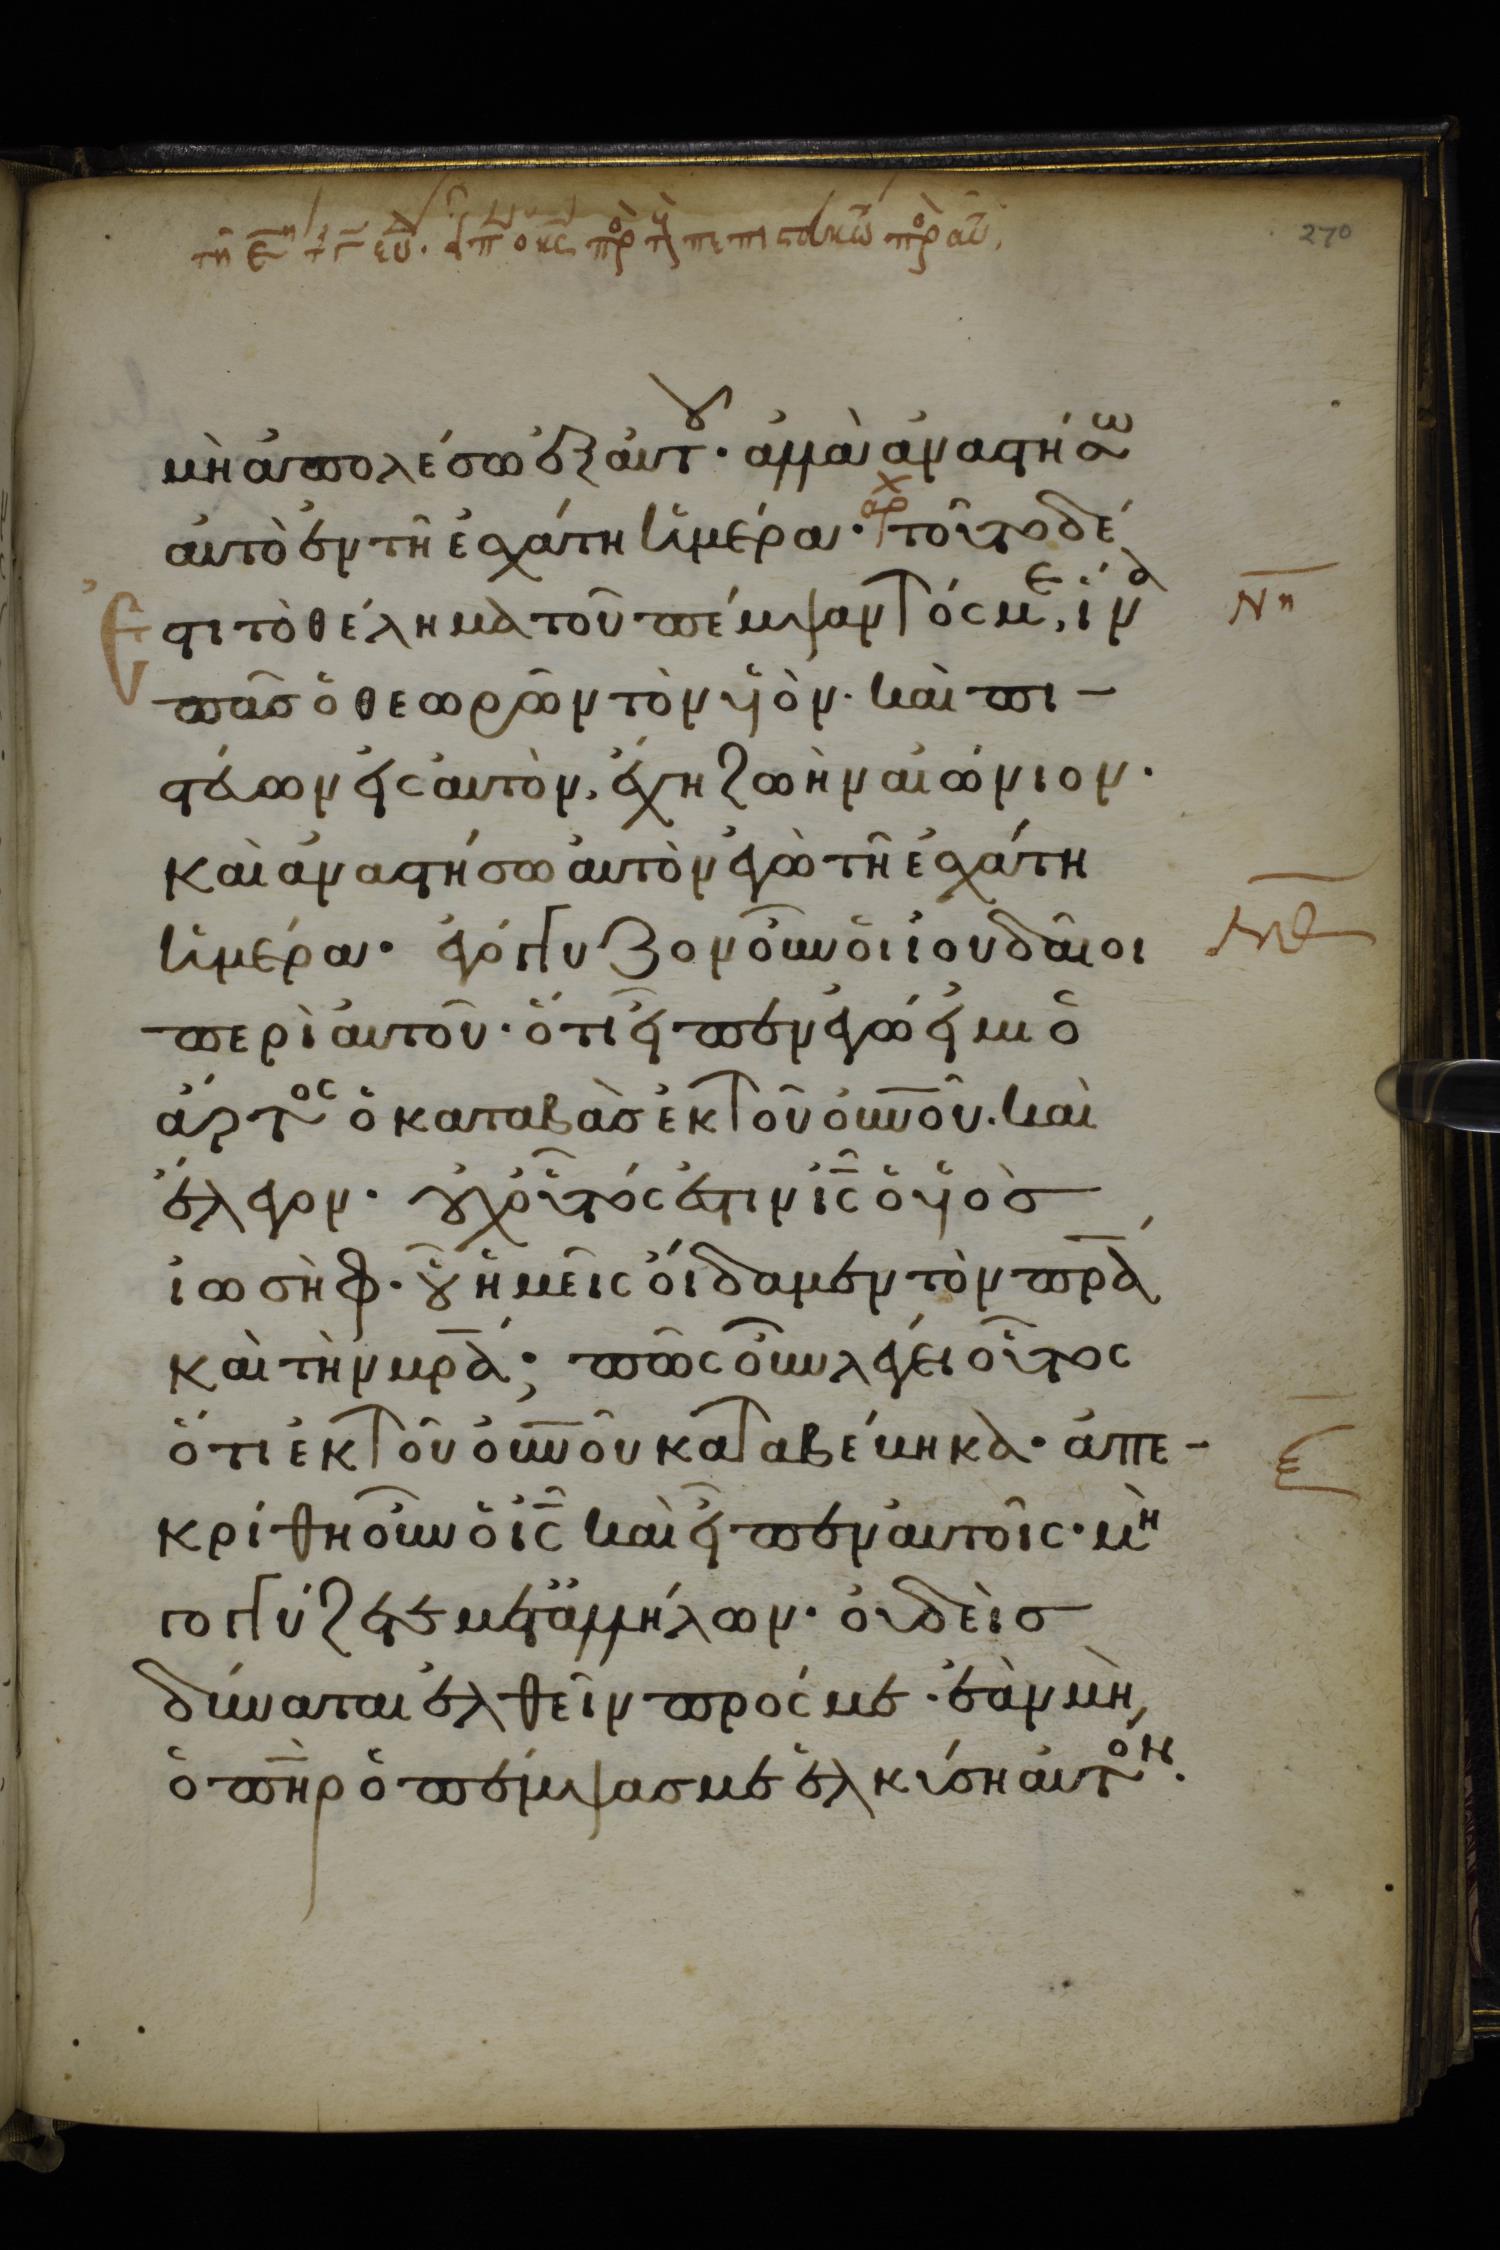 270
μὴ ἀπολέσω ἐξ αὐτοῦ· ἀλλὰ ἀναστήσω
αὐτὸ ἐν τῆ ἐσχάτη ἡμέρα· αρχ τοῦτο δέ
ἐστι τὸ θέλημα τοῦ πέμψαντός με, ἵνα
πᾶσ ὁ θεωρῶν τὸν υἱὸν· καὶ πι-
στεύων εἰς αὐτὸν, ἔχη ζωὴν αἰώνιον·
καὶ ἀναστήσω αὐτὸν ἐγὼ τῆ ἐσχάτη
ἡμέρα· ἐγόγγυζον οὖν ὁι ἰουδαῖοι
περὶ αὐτοῦ· ὅτι εἶπεν ἐγώ εἰμι ὁ
ἄρτος ὁ καταβὰσ ἐκ τοῦ οὐνοῦ. καὶ
ἔλεγον· οὐχ οὗτός ἐστιν ις ὁ υἱὸσ
ἰωσὴφ· οὗ ἡμεῖς οἴδαμεν τὸν πρα
καὶ τὴν μρα; πῶς οὖν λέγει οὗτος
ὅτι ἐκ τοῦ οὐνοῦ καταβέβηκα· ἀπε-
κρίθη οὖν ὁ ις καὶ εἶπεν αὐτοῖς· μὴ
γογγύζετε μετ ἀλλήλων· οὐδεὶσ
δύναται ἐλθεῖν πρός με· ἐὰν μὴ
ὁ πὴρ ὁ πέμψασ με ἑλκύση αὐτόν.
Νη
Νθ
ξ